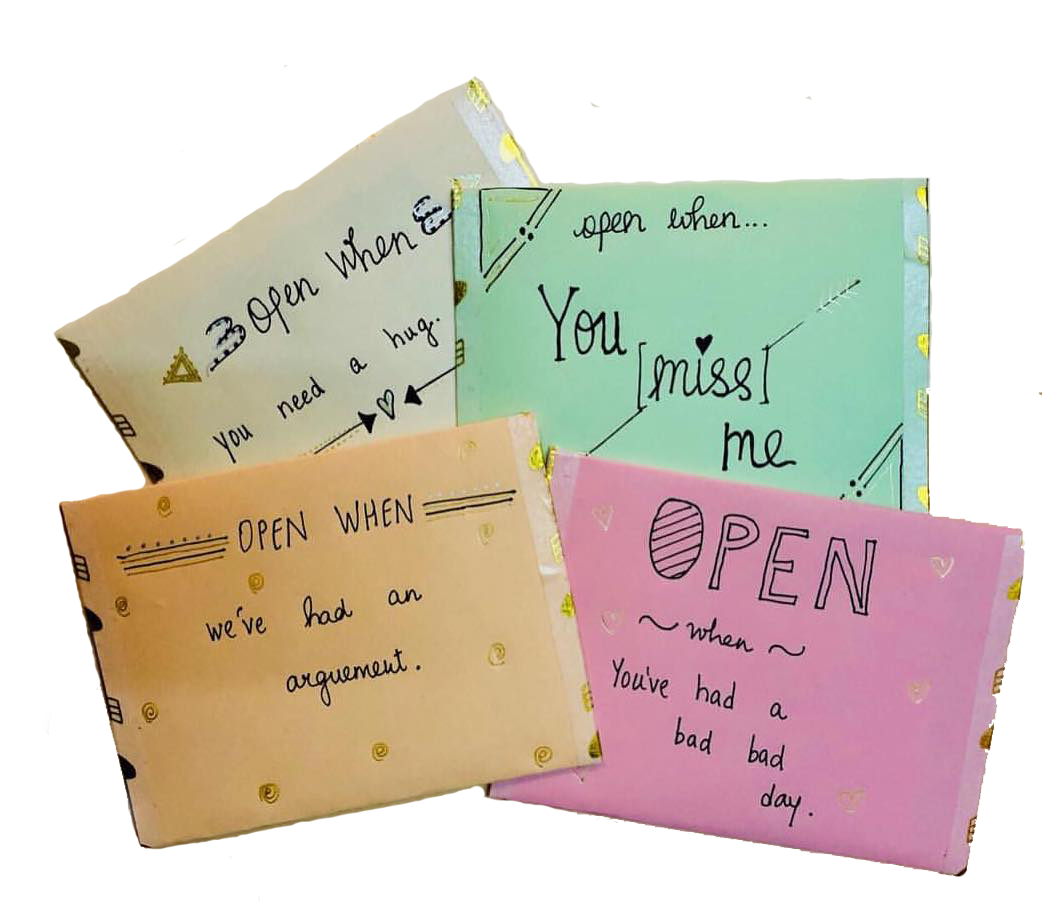 Open When
you need a hug.
open when...
You
[miss]
me
OPEN WHEN
we've had an
arguement.
OPEN
~ when ~
You've had a
bad bad
day.